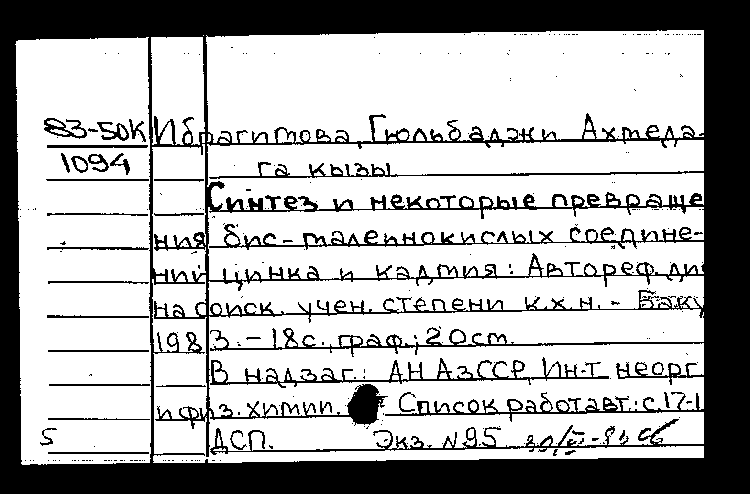 83-50К Ибрагимова, Гюльбаджи Ахмеда-
1094 га кызы
Синтез и некоторые превраще
ния бис-малеинокислых соедине-
ний цинка и кадмия: Автореф. ди
на соиск. учен. степени к.х.н. - Баку
1983. - 18с., граф.; 20см.
В надзаг.: АН АзССР, Ин-т неорг
и физ. химии. Список работ авт.: с.17-1
5 ДСП. Экз. №95